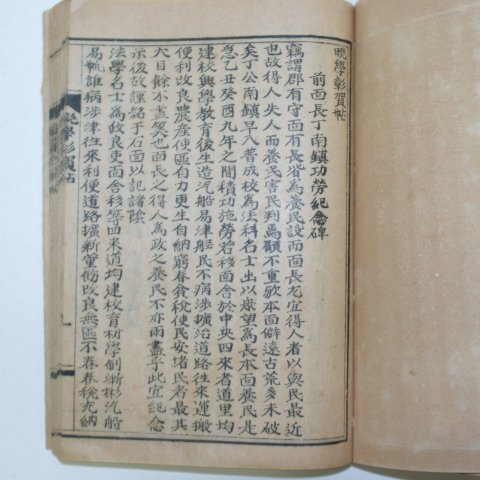 晚學彰賀帖
前面長丁南鎮功勞紀念碑
竊謂郡有守面有長皆為養民設而面長尤宜得人者以與民最近
也故得人失人而養民害民判焉顧不重歟本面僻遠古荒多未破
矣丁公南鎮早入普成校為法科名士出以衆望為長本面養民是
急乙丑癸酉九年之間積功施勞若移面舍於中央四來者道里均
建校興學教育後生造汽船易津艇民不病涉擴治道路往來運搬
便利改良農産使區自力更生自納窮春食稅使民安堵民者最其
大目餘不盡奚也面長之得人為政之養民不亦兩盡乎此宜紀念
示後故謹銘于石面以記諸陰
法學名士為政良吏面舍移等四來道均建校育初學制漸梯汽船
易觥誰病涉津往來利便道路擴新童飭改良無區不春春稅充納
晚學彰賀帖